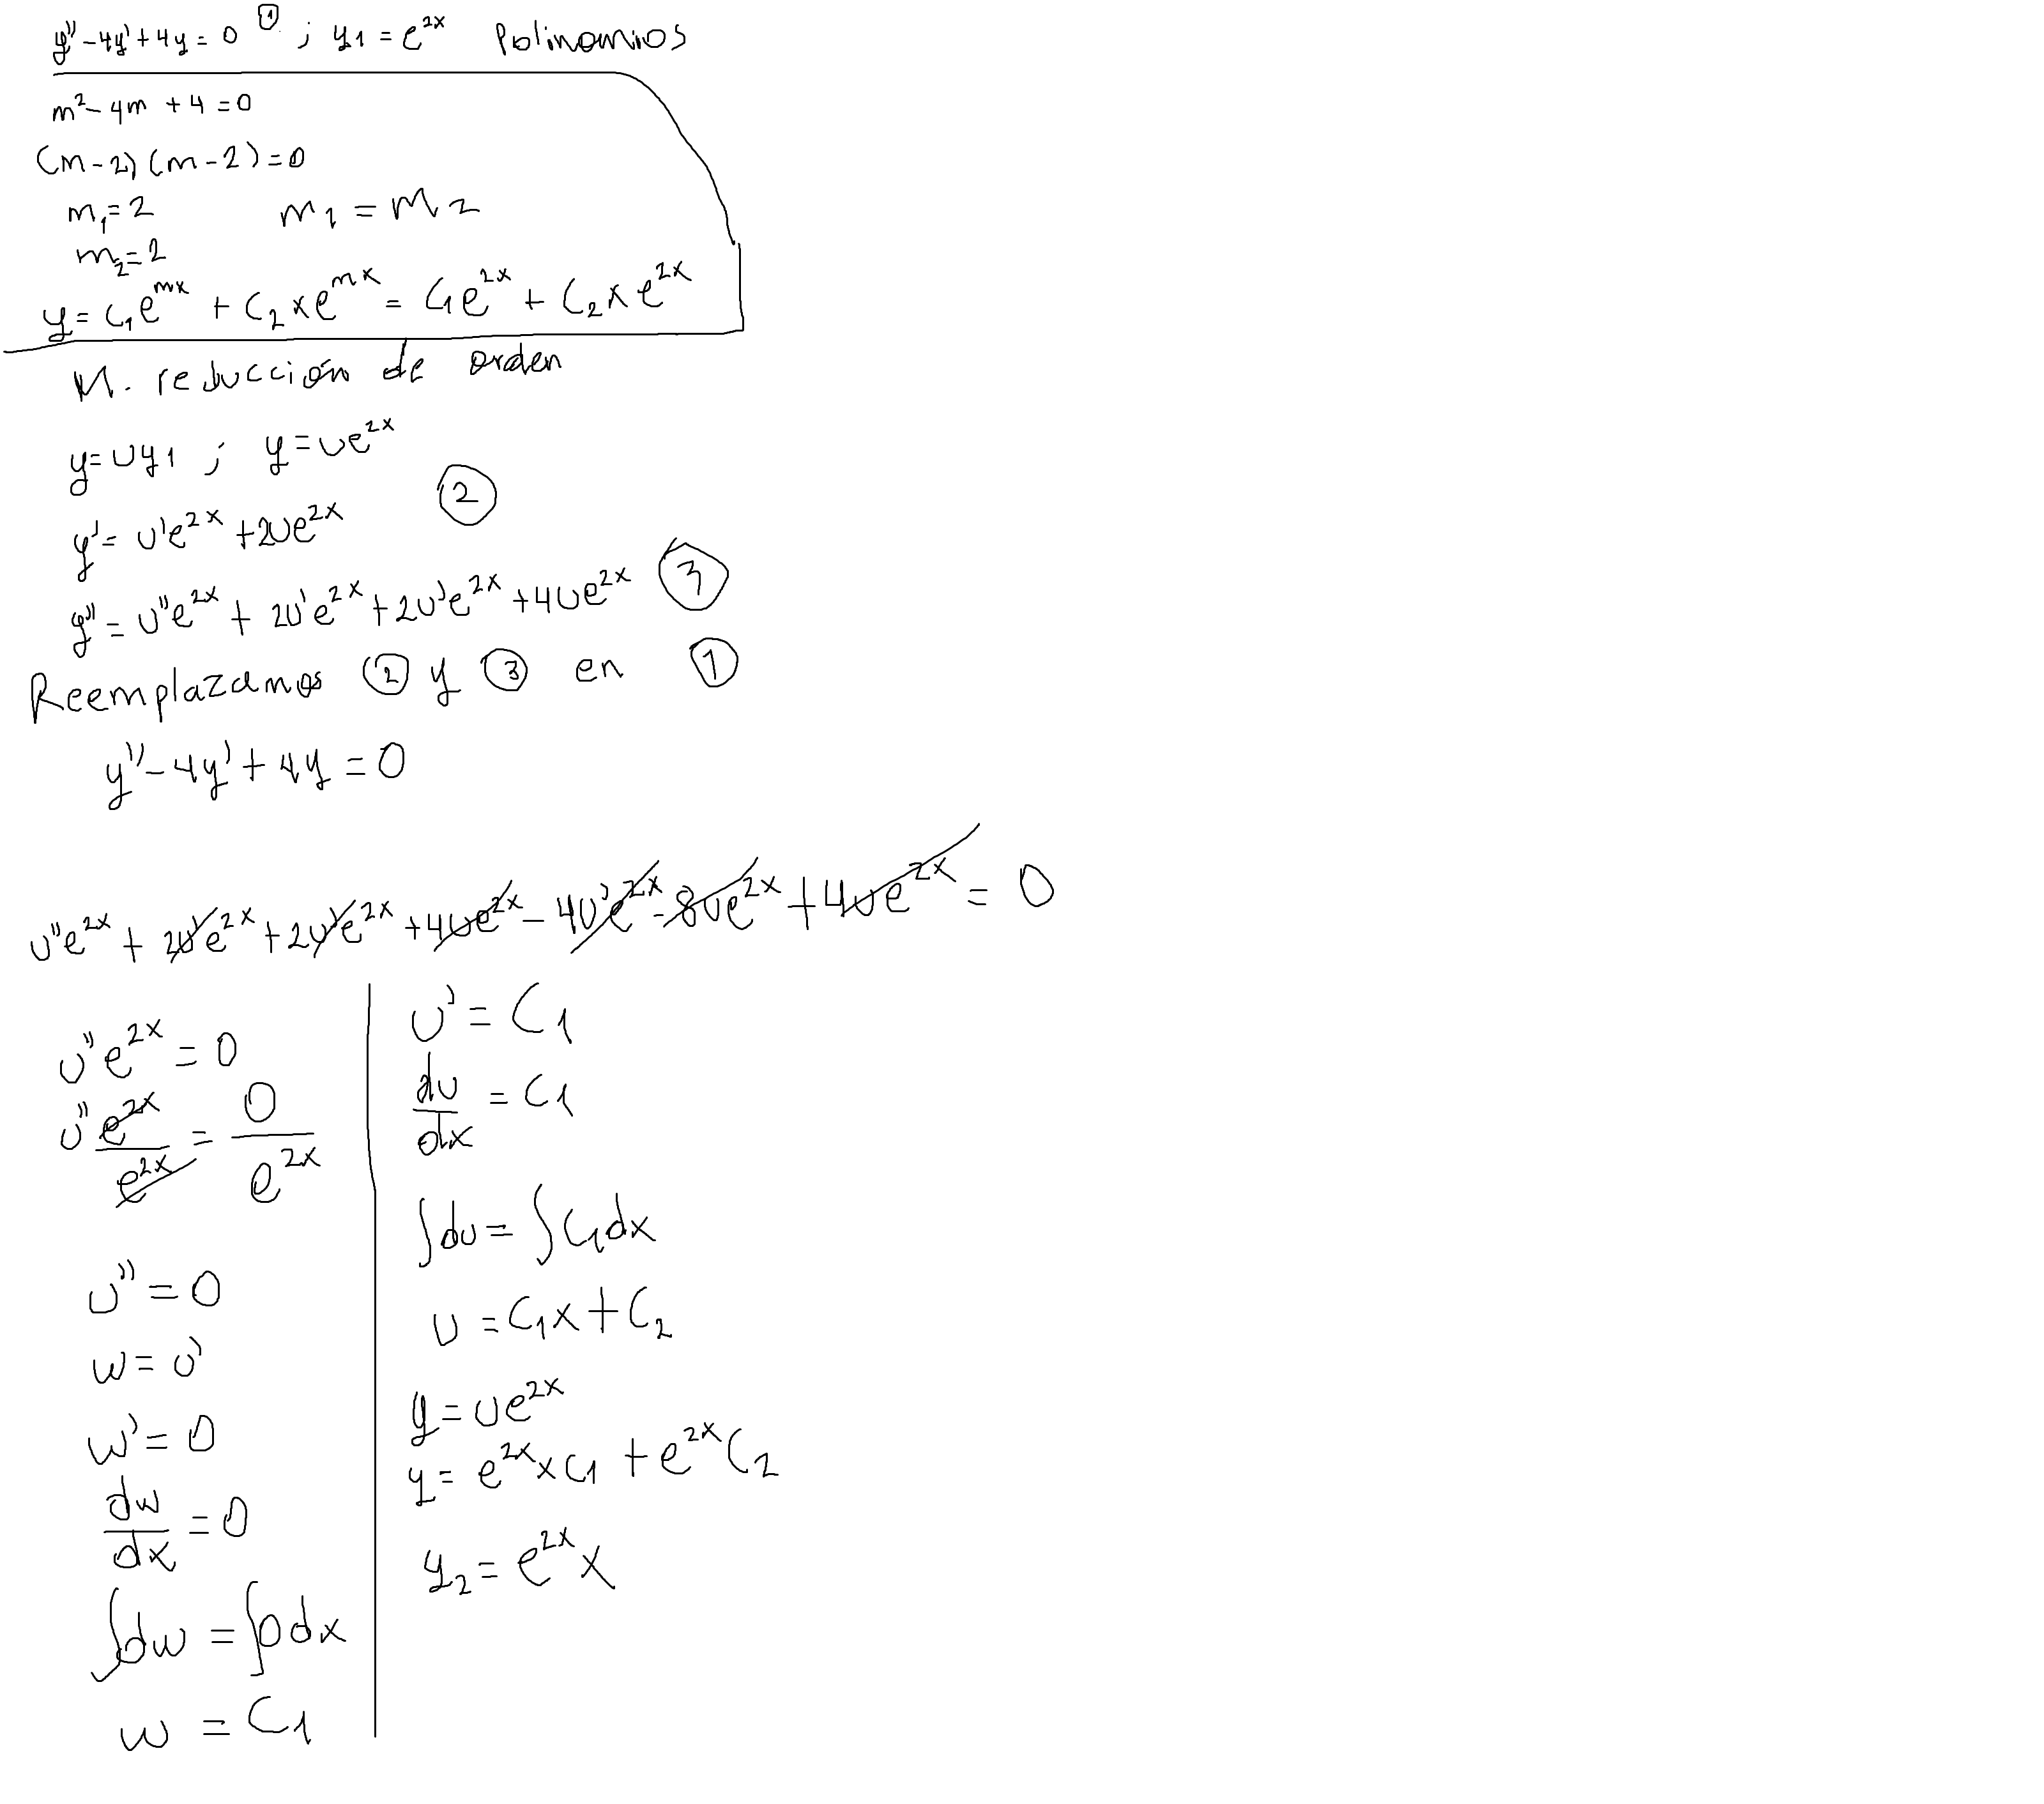 y'' - 4y' + 4y = 0 ① ; y1 = e^2x Polinomios
m² - 4m + 4 = 0
(m - 2) (m - 2) = 0
m₁ = 2 m1 = m2
m₂ = 2
y = C₁e^mx + C₂xe^mx = C₁e^2x + C₂xe^2x
M. reducción de orden
y = uy1 ; y = ue^2x
y' = u'e^2x + 2ue^2x ②
y'' = u''e^2x + 2u'e^2x + 2u'e^2x + 4ue^2x ③
Reemplazamos ② y ③ en ①
y'' - 4y' + 4y = 0
u''e^2x + 2u'e^2x + 2u'e^2x + 4ue^2x - 4u'e^2x - 8ue^2x + 4ue^2x = 0
u''e^2x = 0
u'' e^2x / e^2x = 0 / e^2x
u'' = 0
w = u'
w' = 0
dw/dx = 0
∫dw = ∫0dx
w = C1
u' = C1
du/dx = C1
∫du = ∫C₁dx
u = C₁x + C₂
y = ue^2x
y = e^2x xC1 + e^2x C2
y₂ = e^2x x